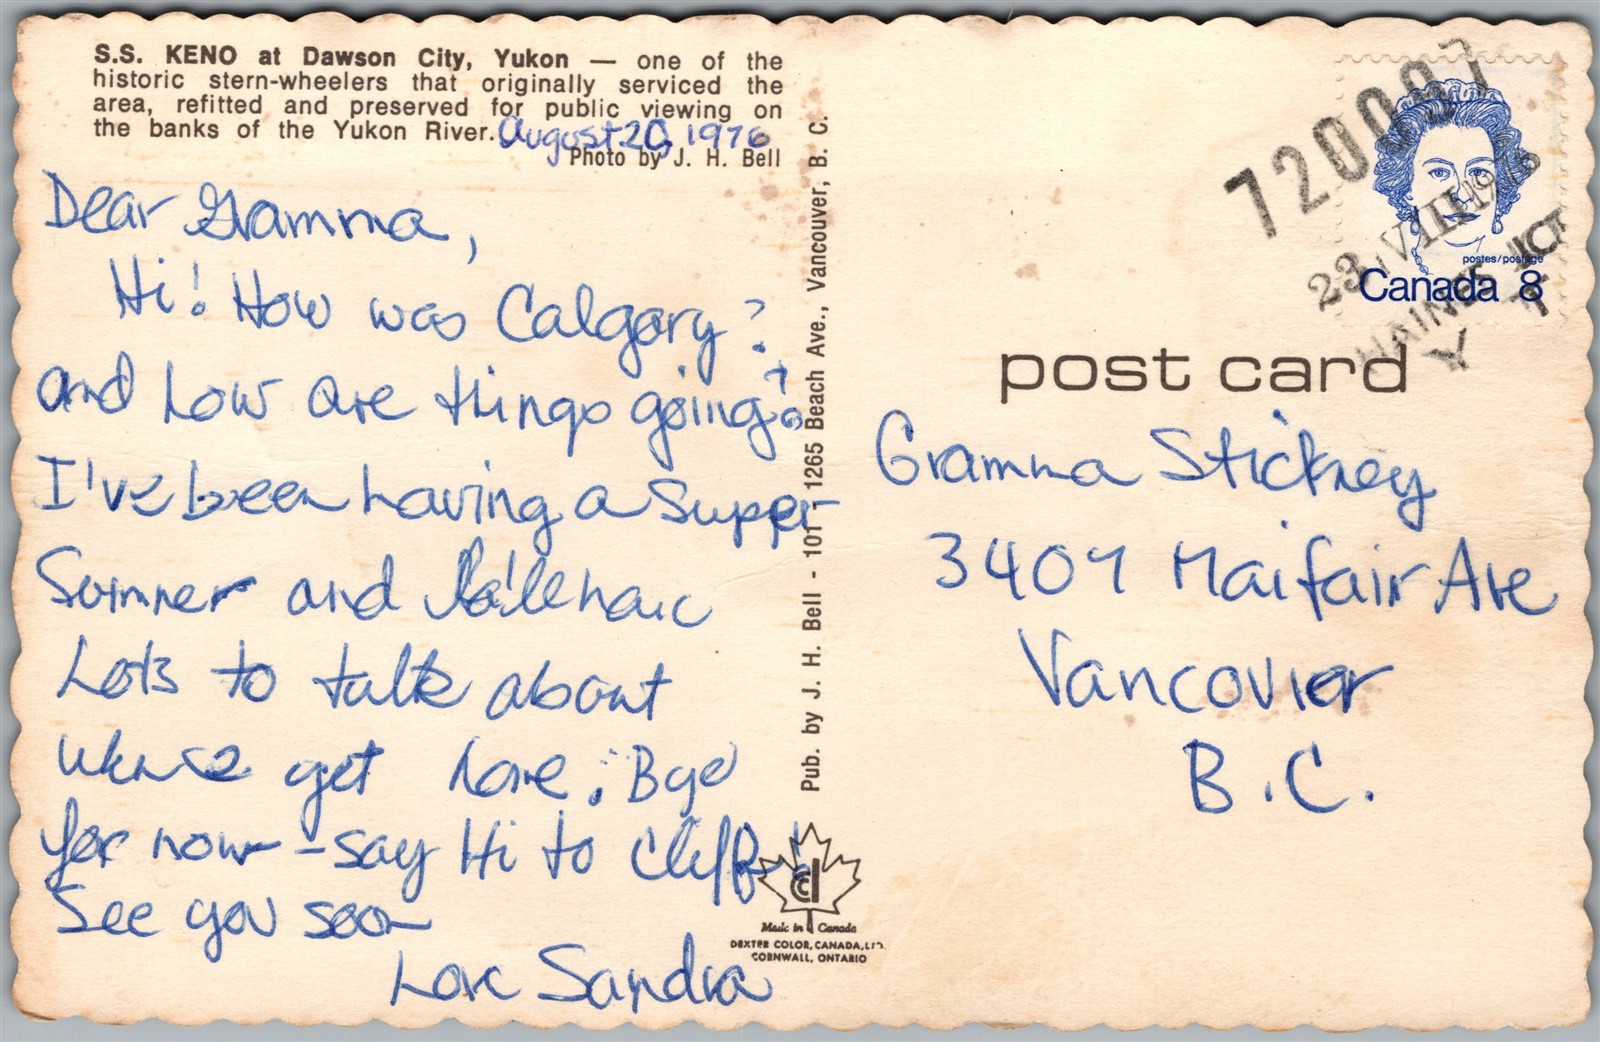 S.S. KENO at Dawson City, Yukon — one of the
historic stern-wheelers that originally serviced the
area, refitted and preserved for public viewing on
the banks of the Yukon River.
August 20, 1976
Photo by J. H. Bell
Dear Gramma,
Hi! How was Calgary?
and how are things going?
I've been having a supper
Summer and
Lots to talk about
when we get home. Bye
for now - say Hi to Cliff!
See you soon
Love Sandra
Pub. by J. H. Bell - 101 - 1265 Beach Ave., Vancouver, B. C.
Made in Canada
DEXTER COLOR, CANADA, LTD.
CORNWALL, ONTARIO
720007
23 VIII 197
HAINES JCT
Y T
postes/postage
Canada 8
post card
Gramma Stickney
3407 Maifair Ave
Vancouver
B.C.